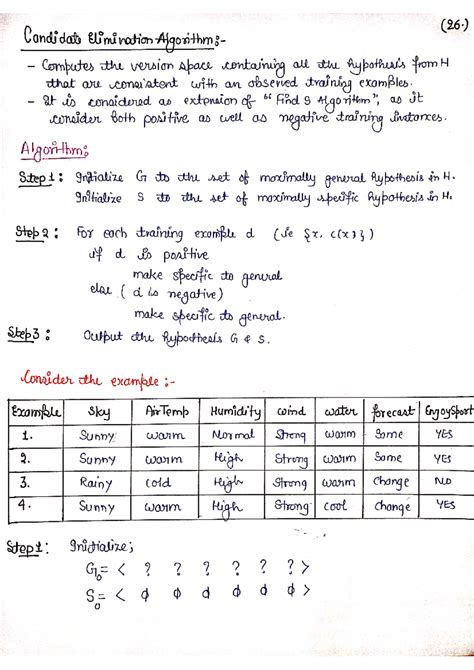 (26.)
Candidate Elimination Algorithm:-
- Computes the version space containing all the hypothesis from H
that are consistent with an observed training examples.
- It is considered as extension of "Find S Algorithm", as it
consider both positive as well as negative training instances.
Algorithm:
Step 1: Initialize G to the set of maximally general hypothesis in H.
Initialize S to the set of maximally specific hypothesis in H.
Step 2: For each training example d (ie {x, c(x)})
if d is positive
make specific to general
else (d is negative)
make general to specific.
Step 3: Output the hypothesis G & S.
Consider the example:-
Example Sky AirTemp Humidity wind water forecast EnjoySport
1. Sunny warm Normal Strong warm Same YES
2. Sunny warm High Strong warm Same YES
3. Rainy cold High Strong warm Change NO
4. Sunny warm High Strong cool Change YES
Step 1: Initialize;
G₀ = < ? ? ? ? ? ? >
S₀ = < ϕ ϕ ϕ ϕ ϕ ϕ >